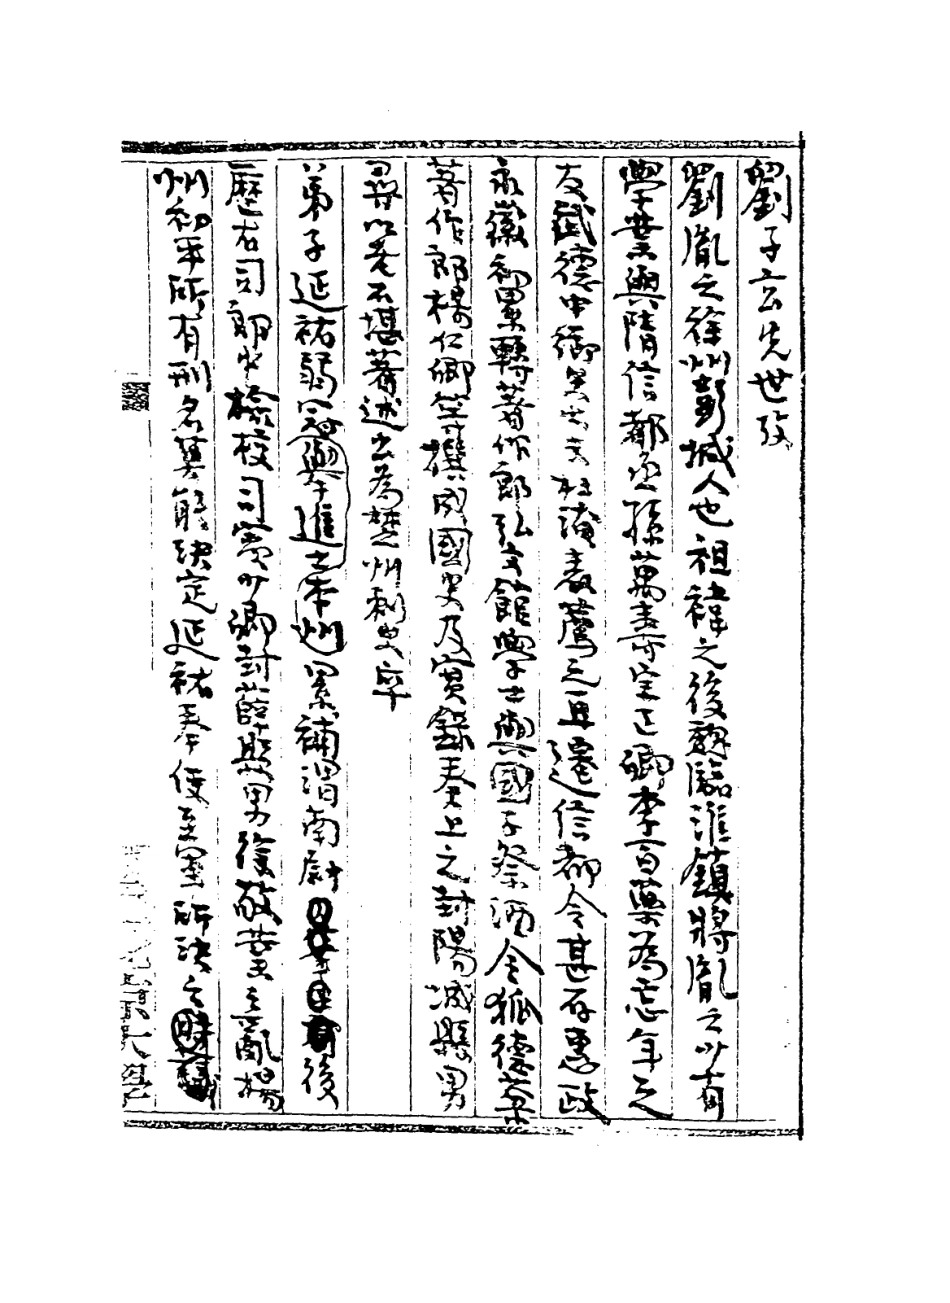 劉子玄先世攷
劉胤之徐州彭城人也祖禕之後魏臨淮鎮將胤之少有
學業與隋信都丞孫萬壽宗正卿李百藥為忘年之
友武德中御史大夫杜淹表薦之再遷信都令甚存惠政
永徽初累轉著作郎弘文館學士與國子祭酒令狐德棻
著作郎楊仁卿等撰成國史及實錄奏上之封陽城縣男
尋以老不堪著述出為楚州刺史卒
弟子延祐弱冠舉進士本州累補渭南尉後
歷右司郎中檢校司賓少卿封薛縣男徐敬業之亂揚
州初平所有刑名莫能決定延祐奉使至軍所決之